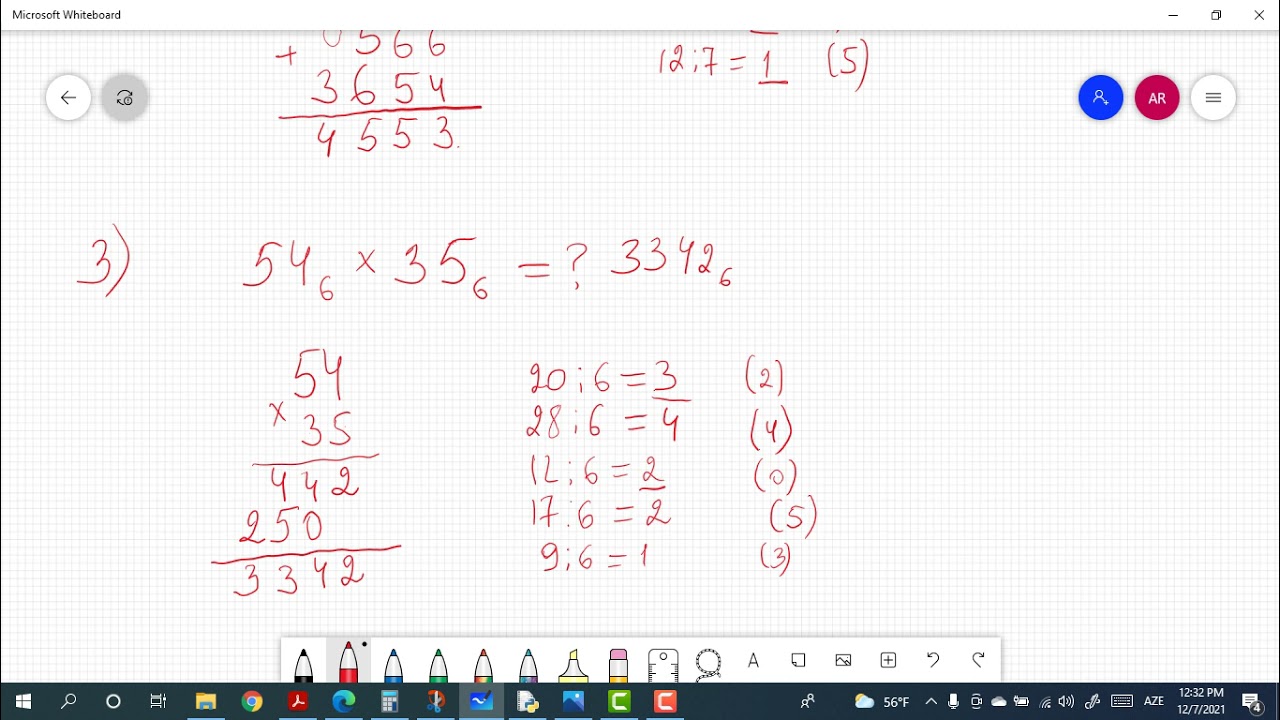 Microsoft Whiteboard
+ 0566
3654
4553.
12:7 = 1 (5)
AR
3) 54₆ × 35₆ = ? 3342₆
54
× 35
442
250
3342
20:6 = 3 (2)
28:6 = 4 (4)
12:6 = 2 (0)
17:6 = 2 (5)
9:6 = 1 (3)
A
56°F
AZE
12:32 PM
12/7/2021
4